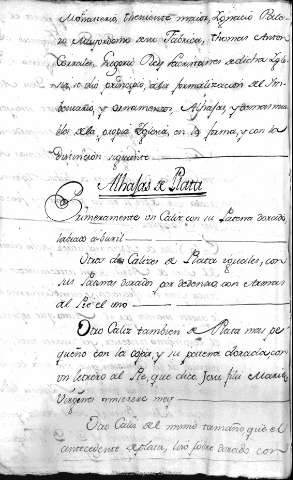 Monasterio, theniente maior, Ygnacio Palo
ro Mayordomo de su Fabrica, Thomas Anton
Corrales, Sachristanes de dicha Ygle
sia, se dio principio, a la formalizacion del Ym
bentario, y ornamentos, Alhajas, y demas mue
bles de la propia Yglesia, en la forma, y con la
distincion siguiente
Alhajas de Plata
Primeramente un Caliz con su Patena dorado,
labrado a buril
Otros dos Calizes de Plata yguales, con
sus Patenas dorados por de dentro, con Armas
al Pie el uno
Otro Caliz tambien de Plata mas pe
queño con la copa, y su patena dorada, con
un letrero al Pie, que dice Jesu fili Maria
Virginis miserere mei
Otro Caliz del mismo tamaño que el
antecedente de plata, liso sobre dorado con